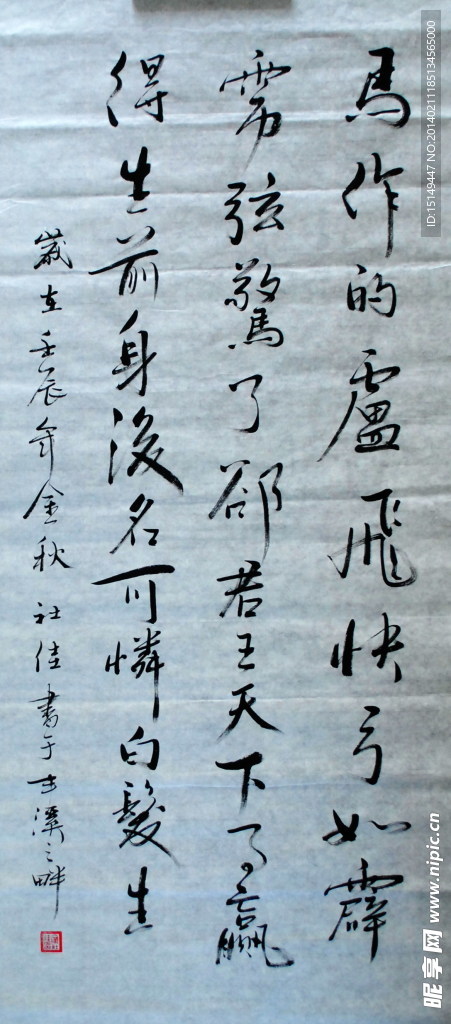 馬作的盧飛快弓如霹
雳弦驚了卻君王天下事贏
得生前身後名可憐白髮生
歲在壬辰年金秋 社佳書于溪之畔
ID:15149447 NO:20140211185134565000
昵享网 www.nipic.cn